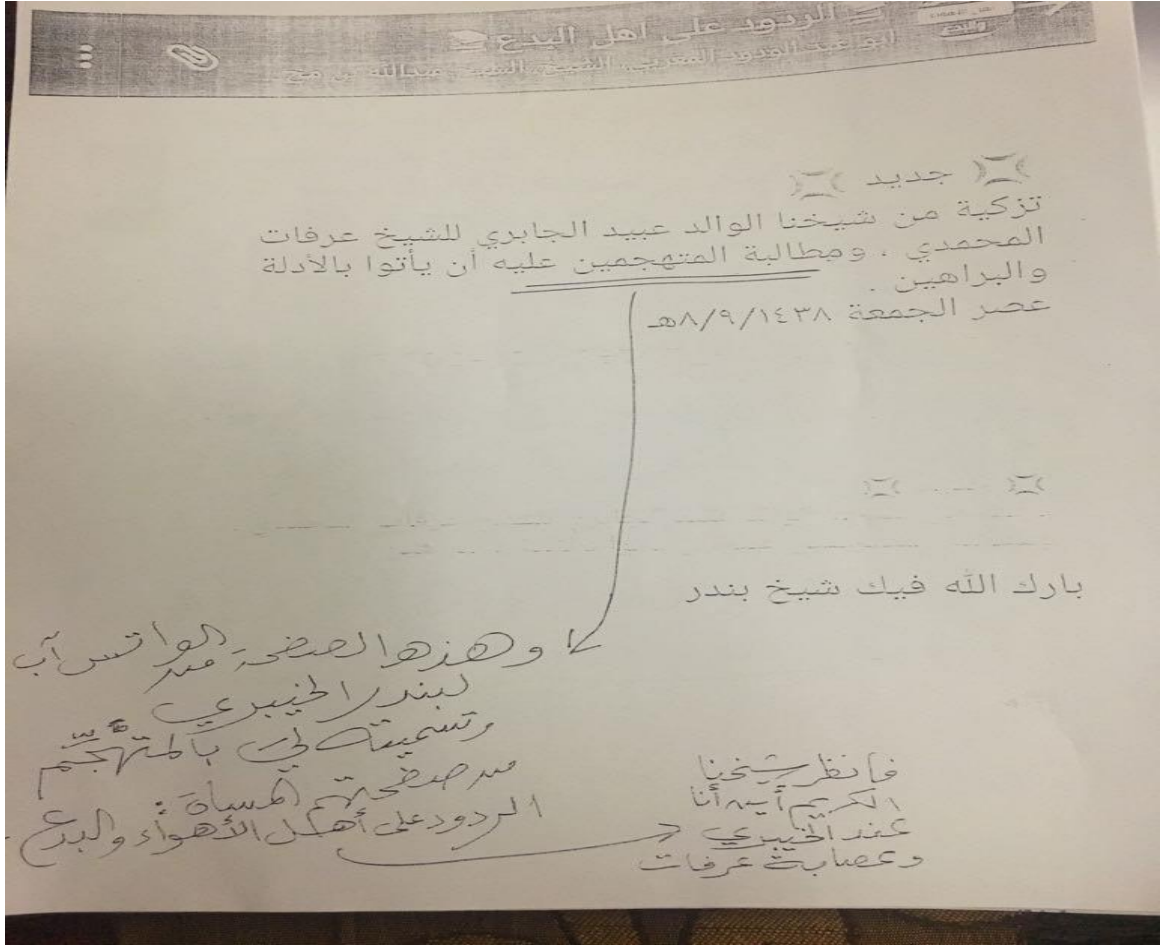 الردود على اهل البدع
ابو عبد الودود المغربي، الشيخ، الشيخ عبدالله بن
جديد
تزكية من شيخنا الوالد عبيد الجابري للشيخ عرفات
المحمدي . ومطالبة المتهجمين عليه أن يأتوا بالأدلة
والبراهين .
عصر الجمعة ٨/٩/١٤٣٨هـ
بارك الله فيك شيخ بندر
وهذه الصفحة من الواتس آب
لبندر الخيبري
وتسميته لي بالمتهجِّم
من صفحتهم المسماة:
الردود على أهل الأهواء والبدع
فانظر شيخنا
الكريم أين أنا
عند الخيبري
وعصابة عرفات